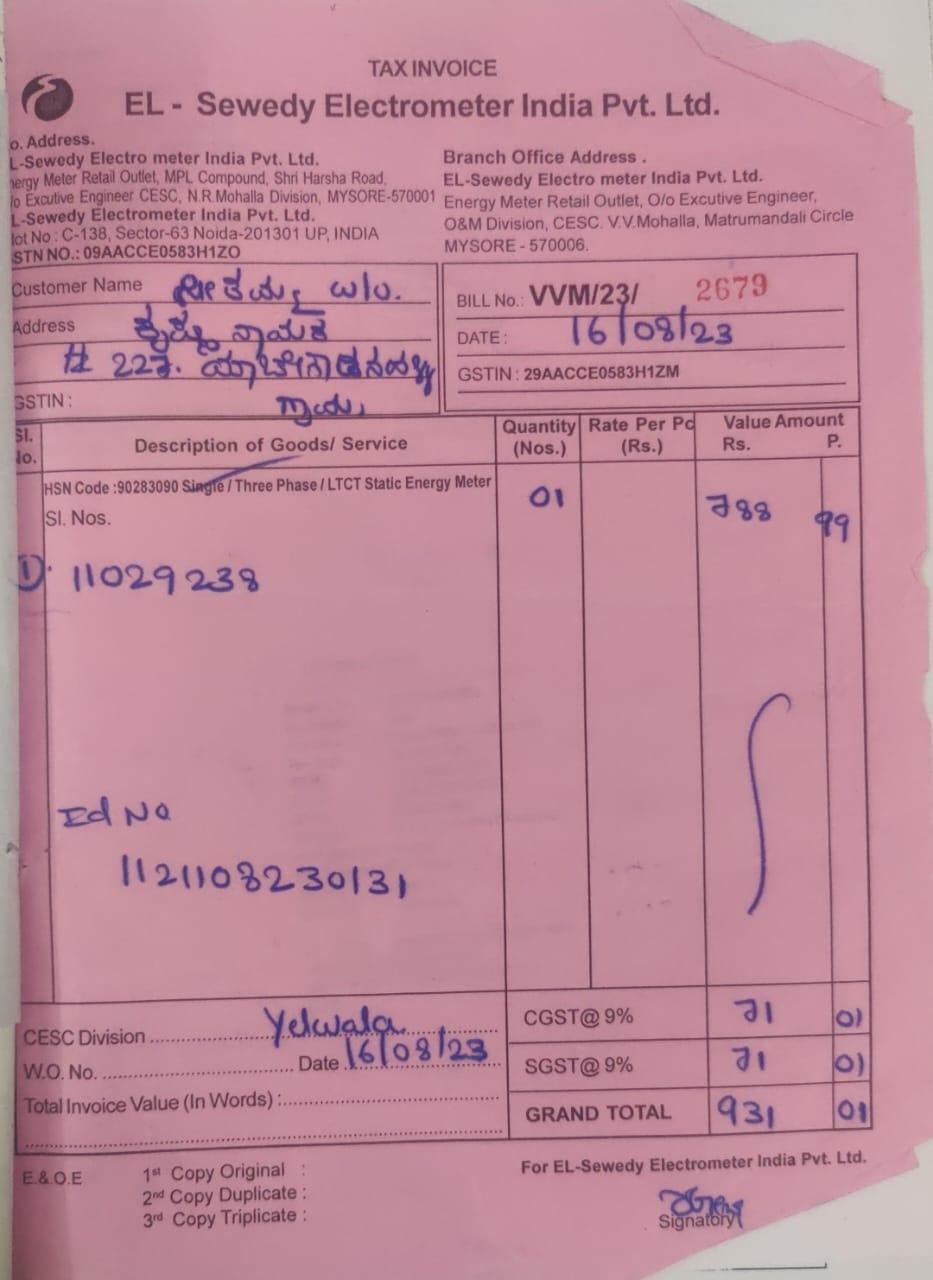 TAX INVOICE
EL - Sewedy Electrometer India Pvt. Ltd.
o. Address.
L-Sewedy Electro meter India Pvt. Ltd.
nergy Meter Retail Outlet, MPL Compound, Shri Harsha Road,
/o Excutive Engineer CESC, N.R.Mohalla Division, MYSORE-570001
L-Sewedy Electrometer India Pvt. Ltd.
lot No : C-138, Sector-63 Noida-201301 UP, INDIA
STN NO.: 09AACCE0583H1ZO
Branch Office Address .
EL-Sewedy Electro meter India Pvt. Ltd.
Energy Meter Retail Outlet, O/o Excutive Engineer,
O&M Division, CESC. V.V.Mohalla, Matrumandali Circle
MYSORE - 570006.
Customer Name
Address ನಾಯಕ
# 227.
GSTIN : ಗ್ರಾಮ
BILL No.: VVM/23/ 2679
DATE : 16/08/23
GSTIN : 29AACCE0583H1ZM
Sl. No. Description of Goods/ Service Quantity (Nos.) Rate Per Pc (Rs.) Value Amount Rs. P.
HSN Code :90283090 Single / Three Phase / LTCT Static Energy Meter 01 788 99
Sl. Nos.
1). 11029238
Id No
1121108230131
CESC Division Yelwala
W.O. No. Date 16/08/23
Total Invoice Value (In Words) :
CGST@ 9% 71 01
SGST@ 9% 71 01
GRAND TOTAL 931 01
E.&.O.E
1st Copy Original :
2nd Copy Duplicate :
3rd Copy Triplicate :
For EL-Sewedy Electrometer India Pvt. Ltd.
Signatory